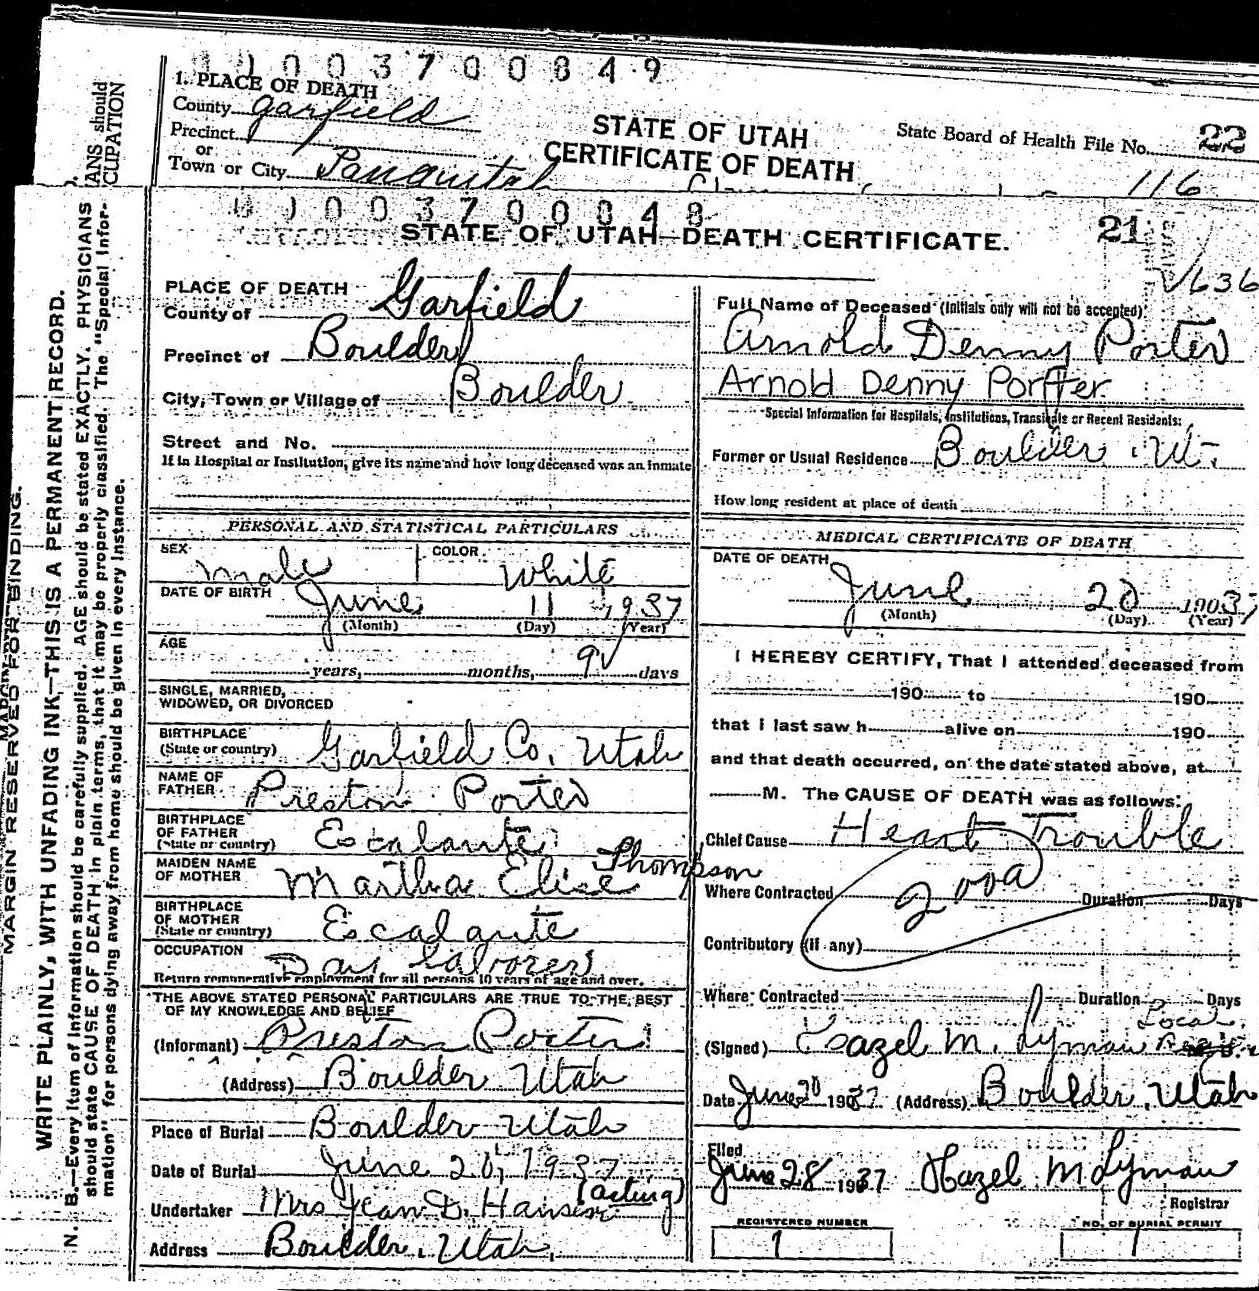 0003700849
1. PLACE OF DEATH
County Garfield
Precinct
or
Town or City Panguitch
STATE OF UTAH
CERTIFICATE OF DEATH
State Board of Health File No. 22
116
0003700848
STATE OF UTAH—DEATH CERTIFICATE.
21
1636
PLACE OF DEATH
County of Garfield
Precinct of Boulder
City, Town or Village of Boulder
Street and No.
If in Hospital or Institution, give its name and how long deceased was an inmate
Full Name of Deceased (Initials only will not be accepted)
Arnold Denny Porter
Arnold Denny Porter
Special Information for Hospitals, Institutions, Transients or Recent Residents:
Former or Usual Residence Boulder, Ut.
How long resident at place of death
PERSONAL AND STATISTICAL PARTICULARS
SEX Male COLOR White
DATE OF BIRTH June 11 1937
(Month) (Day) (Year)
AGE
years, months, 9 days
SINGLE, MARRIED,
WIDOWED, OR DIVORCED
BIRTHPLACE
(State or country) Garfield Co. Utah
NAME OF
FATHER Preston Porter
BIRTHPLACE
OF FATHER
(State or country) Escalante
MAIDEN NAME
OF MOTHER Martha Elise Thompson
BIRTHPLACE
OF MOTHER
(State or country) Escalante
OCCUPATION Day Laborer
Return remunerative employment for all persons 10 years of age and over.
THE ABOVE STATED PERSONAL PARTICULARS ARE TRUE TO THE BEST
OF MY KNOWLEDGE AND BELIEF
(Informant) Preston Porter
(Address) Boulder Utah
Place of Burial Boulder Utah
Date of Burial June 20, 1937
Undertaker Mrs Jean D. Hansen (acting)
Address Boulder, Utah,
MEDICAL CERTIFICATE OF DEATH
DATE OF DEATH June 20 1903 7
(Month) (Day) (Year)
I HEREBY CERTIFY, That I attended deceased from
190 to 190
that I last saw h alive on 190
and that death occurred, on the date stated above, at
M. The CAUSE OF DEATH was as follows:
Chief Cause Heart Trouble
200a
Where Contracted Duration Days
Contributory (if any)
Where Contracted Duration Days
(Signed) Hazel M. Lyman Local Reg
Date June 20 1937 (Address) Boulder, Utah
Filed
June 28 1937 Hazel M Lyman
Registrar
REGISTERED NUMBER
1
NO. OF BURIAL PERMIT
1
MARGIN RESERVED FOR BINDING.
WRITE PLAINLY, WITH UNFADING INK—THIS IS A PERMANENT RECORD.
N. B.—Every item of information should be carefully supplied. AGE should be stated EXACTLY. PHYSICIANS
should state CAUSE OF DEATH in plain terms, that it may be properly classified. The "Special Infor-
mation" for persons dying away from home should be given in every instance.
ANS should
CUPATION